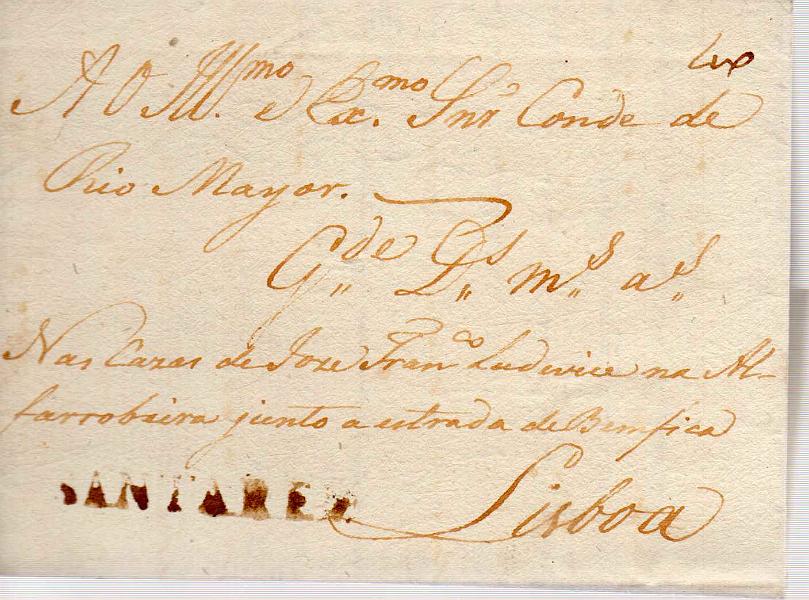 A O Illmo. e Exmo. Snr Conde de
Rio Mayor.
Gde Ds ms as
Nas Cazas de Joze Franco Ludovice na Al-
farrobeira junto a estrada de Bemfica
Lisboa
SANTAREM